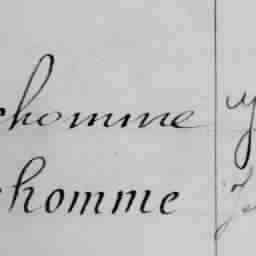 chomme
chomme